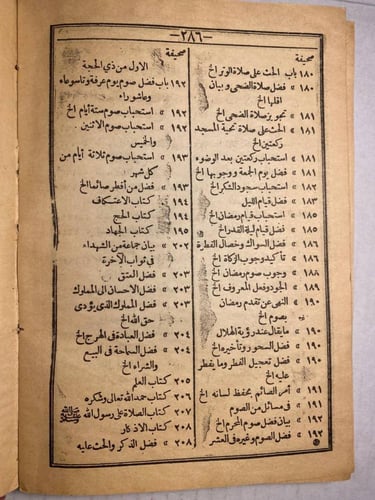 —٢٨٦—
صحيفة
١٨٠ باب الحث على صلاة الوتر الخ
١٨٠ » فضل صلاة الضحى وبيان
اقلها الخ
١٨١ » تجويز صلاة الضحى الخ
١٨١ » الحث على صلاة تحية المسجد
ركعتين الخ
١٨١ » استحباب ركعتين بعد الوضوء
١٨١ » فضل يوم الجمعة ووجوبها الخ
١٨٢ » استحباب سجود الشكر الخ
١٨٣ » فضل قيام الليل
١٨٥ » استحباب قيام رمضان الخ
١٨٥ » فضل قيام ليلة القدر الخ
١٨٦ » فضل السواك وخصال الفطرة
١٨٦ » تأكيد وجوب الزكاة الخ
١٨٨ » وجوب صوم رمضان الخ
١٨٩ » الجود وفعل المعروف الخ
١٩٠ » النهى عن تقدم رمضان
بصوم الخ
١٩٠ » ما يقال عند رؤية الهلال
١٩٠ » فضل السحور وتأخيره الخ
١٩٠ » فضل تعجيل الفطر وما يفطر
عليه الخ
١٩١ » أمر الصائم بحفظ لسانه الخ
١٩١ » فى مسائل من الصوم
١٩١ » بيان فضل صوم المحرم الخ
١٩٢ » فضل الصوم وغيره فى العشر
صحيفة
الاول من ذي الحجة
١٩٢ باب فضل صوم يوم عرفة وتاسوعاء
وعاشوراء
١٩٢ » استحباب صوم ستة أيام الخ
١٩٢ » استحباب صوم الاثنين
والخميس
١٩٣ » استحباب صوم ثلاثة أيام من
كل شهر
١٩٣ » فضل من أفطر صائما الخ
١٩٤ » كتاب الاعتكاف
١٩٤ » كتاب الحج
١٩٥ » كتاب الجهاد
٢٠٢ » بيان جماعة من الشهداء
فى ثواب الآخرة
٢٠٣ » فضل العتق
٢٠٣ » فضل الاحسان الى المملوك
٢٠٣ » فضل المملوك الذى يؤدى
حق الله الخ
٢٠٤ » فضل العبادة فى الهرج الخ
٢٠٤ » فضل السماحة فى البيع
والشراء الخ
٢٠٥ » كتاب العلم
٢٠٦ » كتاب حمد الله تعالى وشكره
٢٠٧ » كتاب الصلاة على رسول الله ﷺ
٢٠٨ » كتاب الاذكار
٢٠٨ » فضل الذكر والحث عليه